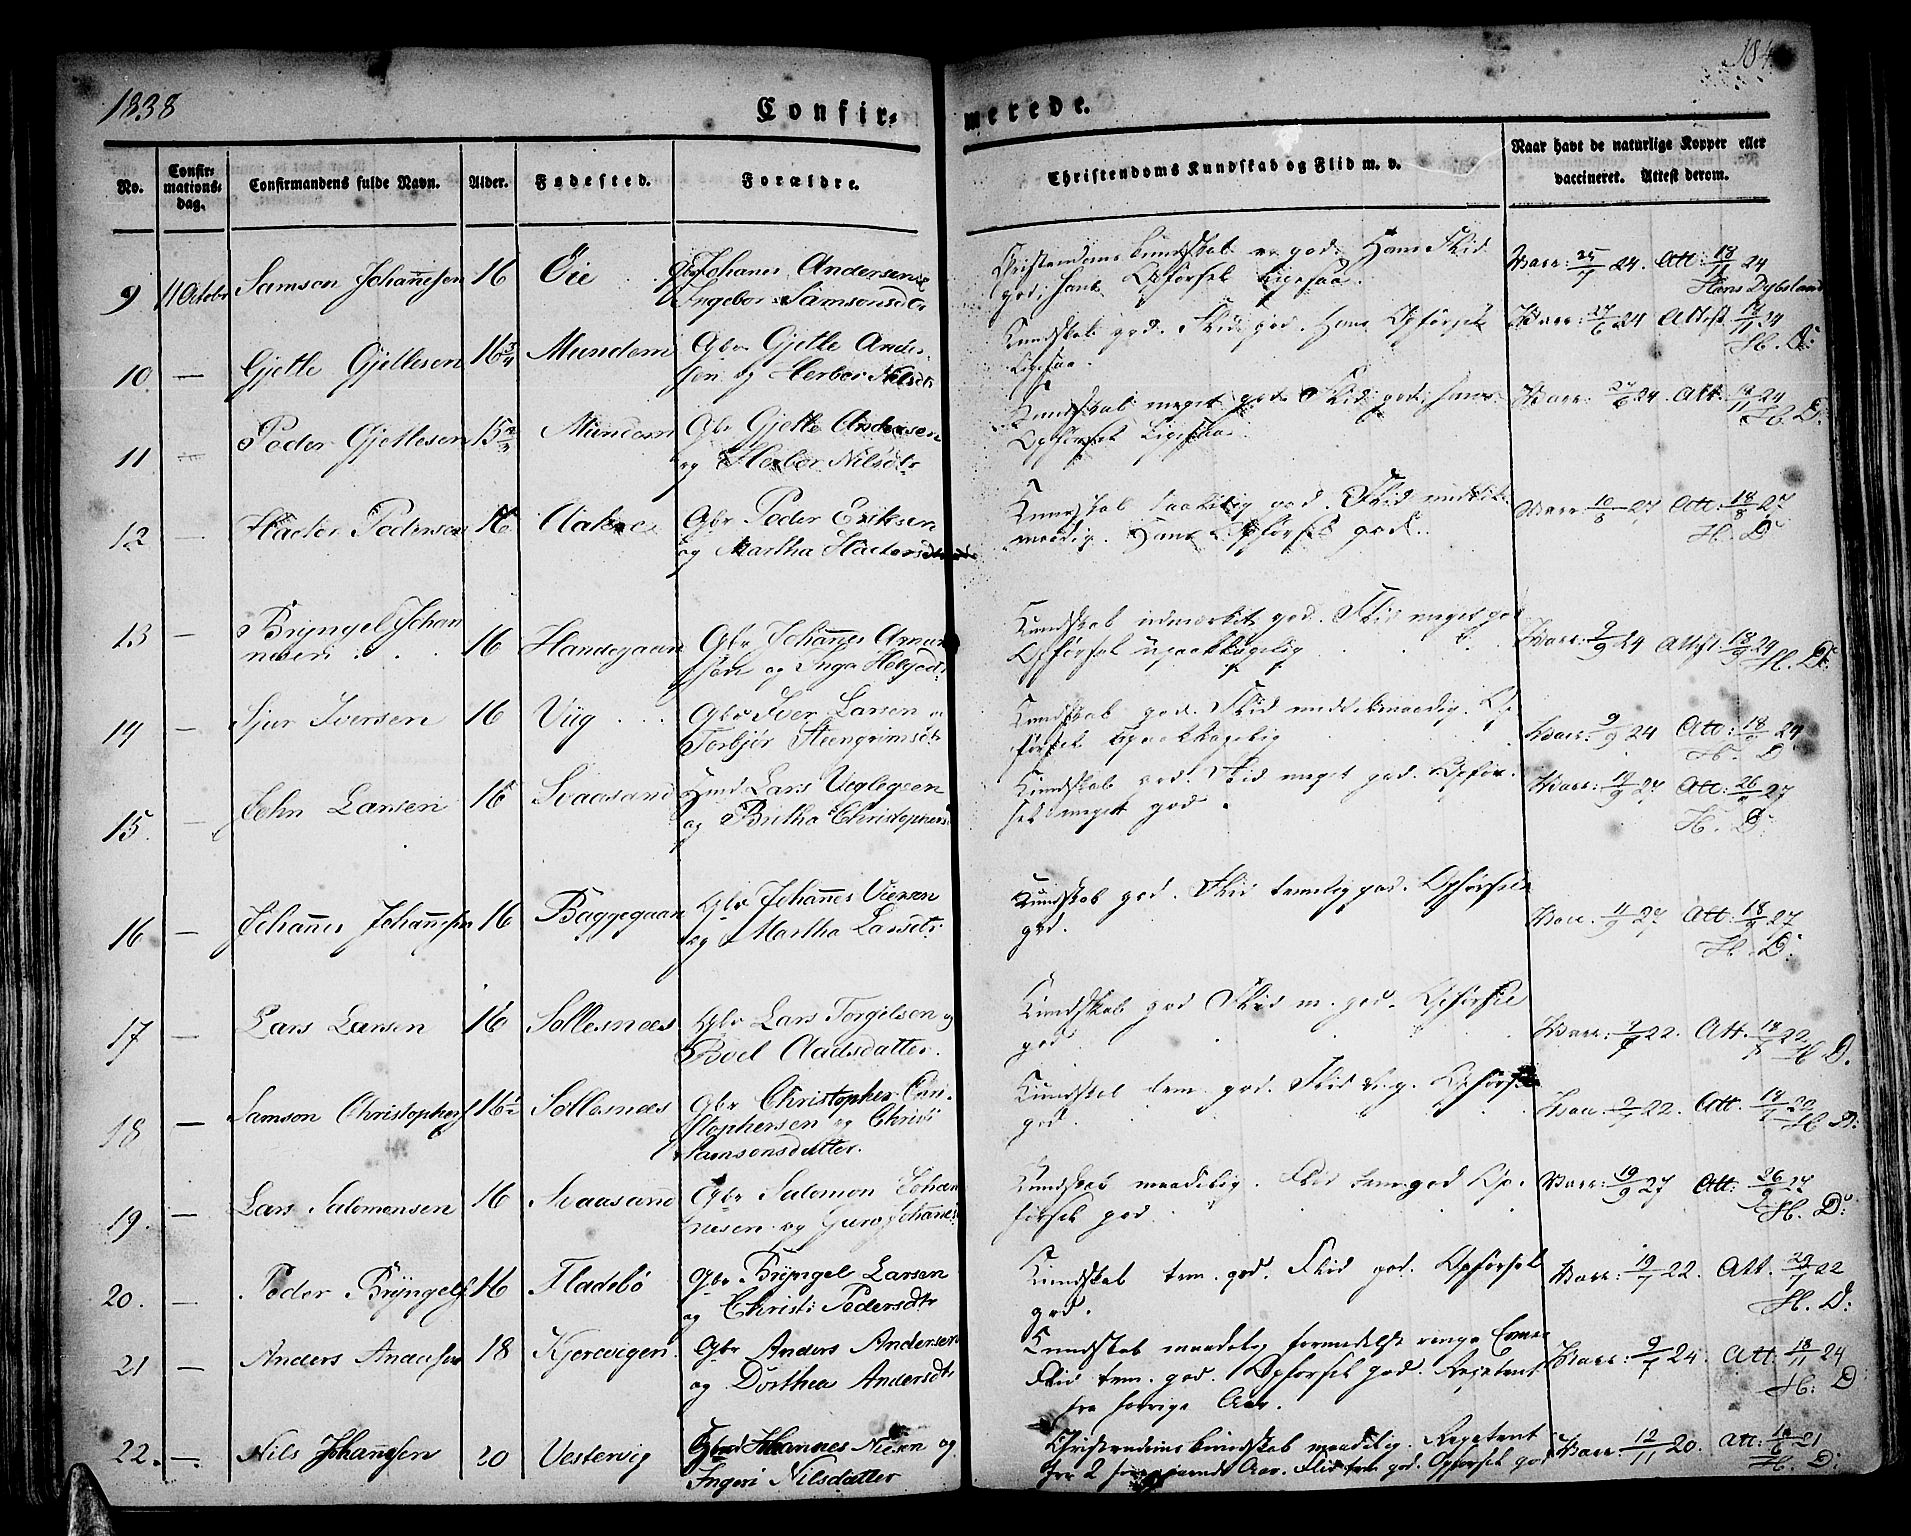 1838
Confir-
merede.
No.
Confir-
mations-
dag.
Confirmandens fulde Navn.
Alder.
Fødested.
Forældre.
Christendoms Kundskab og Flid m. v.
Naar havt de naturlige Kopper eller
vaccineret. Attest derom.
9 11 October Samson Johannesen 16 Øie Gbr Johanes Andersen &
Ingebor Samsonsdtr
Christendoms kundskab er god. Hans Flid
god; hans Opførsel ligesaa.
Vacc: 25/7 24. Att: 18/11 24
Hans Dybsland
10 — Gjetle Gjetlesen 16 3/4 Mundem Gbr Gjetle Ander-
sen og Herbor Nilsdtr
Kundskab god. Flid god. Hans Opførsel
ligesaa.
Vacc: 27/6 24 Attest 18/11 24
H. D:
11 — Peder Gjetlesen 15 Mundem Gbr Gjetle Andersen
og Herbor Nilsdtr
Kundskab meget god. Flid god; hans
Opførsel ligesaa.
Vacc: 27/6 24. Att 18/11 24
H. D:
12 — Hactor Pedersen 16 Aakre Gbr Peder Eriksen
og Martha Hactorsdtr
Kundskab taalelig god. Flid middel-
maadig. Hans Opførsel god.
Vacc: 10/8 27 Att: 18/8 27
H. D:
13 — Bryngel Johan
nesen 16 Handegaard Gbr Johannes Amun
sen og Inga Helgedtr
Kundskab udmærket god. Flid meget god
Opførsel upaaklagelig
Vacc: 9/9 24 Attest. 18/9 24
H. D:
14 — Sjur Iversen 16 Viig Gbr Iver Larsen o
Torbjør Steengrimsdtr
Kundskab god. Flid middelmaadig. Op
førsel upaaklagelig
Vacc: 9/9 24 Att: 18/9 24
H. D:
15. — John Larsen 16 Svaasand Hmd Lars Veglegeen
og Britha Christophers
Kundskab god. Flid meget god. Opfør-
sel meget god.
Vacc: 19/9 27 Att: 26/9 27
H. D:
16 — Johannes Johannesen 16 Baggegaard Gbr Johannes Viersen
og Martha Larsdtr
Kundskab god. Flid temelig god. Opførsel
god.
Vacc. 11/9 27 Att: 18/9 27
H. D:
17 — Lars Larsen 16 Sollesnes Gbr Lars Torgilsen og
Boel Aadsdatter.
Kundskab god Flid m. god. Opførsel
god.
Vacc: 9/7 22. Att. 18/7 22
H. D.
18 — Samson Christophers 16 1/2 Sollesnes Gbr Christopher Chri-
stophersen og Christi
Samsonsdatter.
Kundskab tem. god. Flid m. g. Opførsel
god.
Vacc 9/7 22. Att. 18/7 22
H. D:
19. — Lars Salomonsen 16 Svaasand Gbr Salomon Johan
nesen og Guro Johannes
Kundskab maadelig. Flid tem. god Op-
førsel god.
Vacc: 19/9 27 Att: 26/9 27
H. D:
20. — Peder Bryngels 16 Fladebø Gbr Bryngel Larsen
og Christi Pedersdtr
Kundskab tem. god. Flid god. Opførsel
god.
Vacc: 19/7 22. Att. 29/7 22
H. D:
21 — Anders Andersen 18 Kjerevigen Gbr Anders Andersen
og Dorthea Andersdtr
Kundskab maadelig formedelst ringe Evner
Flid tem. god. Opførsel god. Repetent
fra forrige Aar.
Vacc: 9/7 24. Att: 18/11 24
H: D
22. — Nils Johannesen 20 Vestervig Johannes Nilsen og
Ingeri Nilsdatter
Christendoms kundskab maadelig. Repetent
fra 2 foregaaende Aar. Flid tem. god. Opførsel god
Vacc: 12/11 20. Att: 18/6 21
H. D: